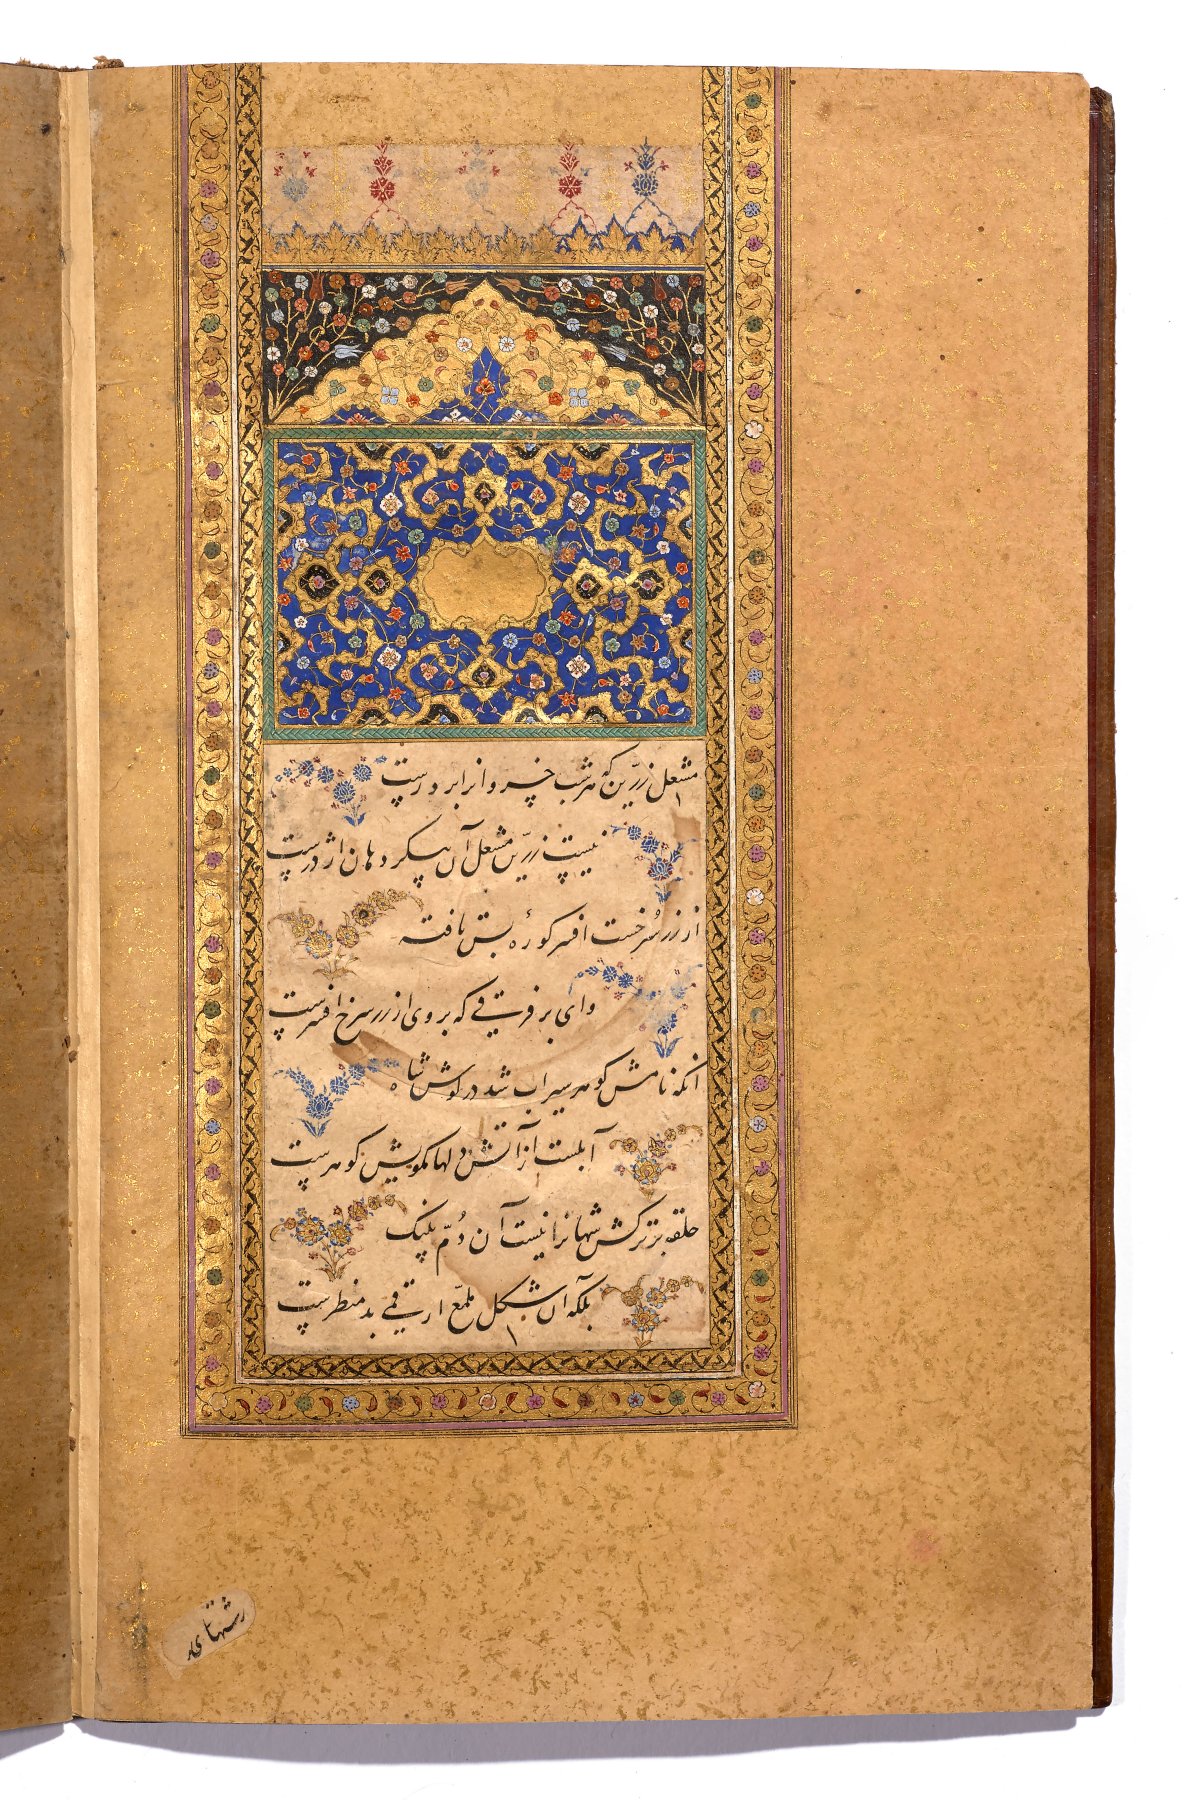 مشعل زرّین که هر شب خسرو انرا بر درست
نیست زرّین مشعل آن پیکر دهان اژدرست
از زر سُرخست افسر کورهٔ بس تافته
وای بر فرقی که بروی از زر سرخ افسرست
انکه نامش کوهر سیراب شد در کوش شاه
آبلست از آتش دلها مکویش کوهرست
حلقه بر ترکش شهانرا نیست آن دُمّ پلنک
بلکه آن شکل ملمّع ارقمی بد منظرست